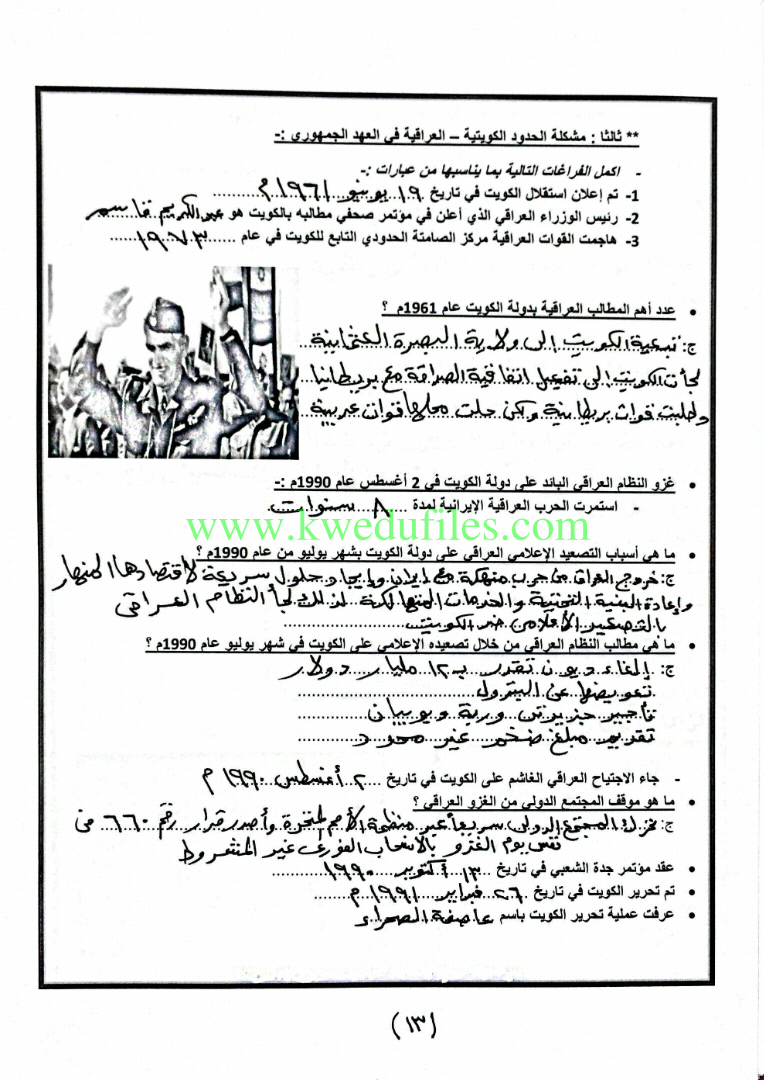 ** ثالثا : مشكلة الحدود الكويتية – العراقية في العهد الجمهوري :-
- اكمل الفراغات التالية بما يناسبها من عبارات :-
1- تم إعلان استقلال الكويت في تاريخ ١٩ يونيو ١٩٦١ م
2- رئيس الوزراء العراقي الذي أعلن في مؤتمر صحفي مطالبه بالكويت هو عبدالكريم قاسم
3- هاجمت القوات العراقية مركز الصامتة الحدودي التابع للكويت في عام ١٩٧٣
• عدد أهم المطالب العراقية بدولة الكويت عام 1961م ؟
ج: تبعية الكويت الى ولاية البصرة العثمانية
لجأت الكويت الى تفعيل اتفاقية الصداقة مع بريطانيا
وطلبت قوات بريطانية ولكن حلت محلها قوات عربية
• غزو النظام العراقي البائد على دولة الكويت في 2 أغسطس عام 1990م :-
- استمرت الحرب العراقية الإيرانية لمدة ٨ سنوات
www.kwedufiles.com
• ما هي أسباب التصعيد الإعلامي العراقي على دولة الكويت بشهر يوليو من عام 1990م ؟
ج: خروج العراق من حرب منهكة مع ايران وإيجاد حلول سريعة لاقتصادها المنهار
وإعادة البنية التحتية والخدمات المتهالكة لذلك لجأ النظام العراقي
بالتصعير الأعلامي ضد الكويت
• ما هي مطالب النظام العراقي من خلال تصعيده الإعلامي على الكويت في شهر يوليو عام 1990م ؟
ج: إلغاء ديون تقدر بـ ١٢ مليار دولار
تعويضها عن البترول
تأجير جزيرتي وربة وبوبيان
تقديم مبلغ ضخم غير محدود
- جاء الاجتياح العراقي الغاشم على الكويت في تاريخ ٢ أغسطس ١٩٩٠ م
• ما هو موقف المجتمع الدولي من الغزو العراقي ؟
ج: تحرك المجتمع الدولي سريعاً عبر منظمة الأمم المتحدة وأصدر قرار رقم ٦٦٠ في
نفس يوم الغزو بالانسحاب الفوري غير المشروط
• عقد مؤتمر جدة الشعبي في تاريخ ١٣ أكتوبر ١٩٩٠
• تم تحرير الكويت في تاريخ ٢٦ فبراير ١٩٩١ م
• عرفت عملية تحرير الكويت باسم عاصفة الصحراء
(١٣)